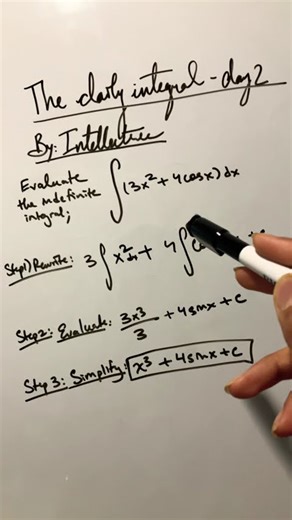 The daily integral - day 2
By: Intellectree
Evaluate
the indefinite
integral;
∫(3x² + 4cosx) dx
Step 1) Rewrite: 3∫x² dx + 4∫
Step 2: Evaluate: 3x³/3 + 4sinx + c
Step 3: Simplify: x³ + 4sinx + c